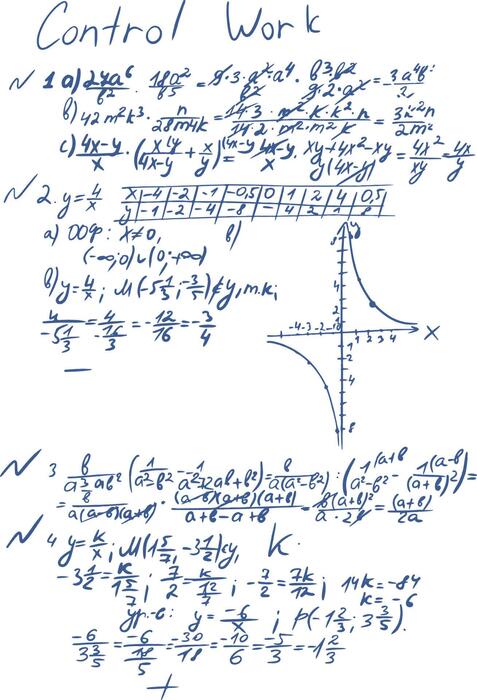 Control Work
N 1 a) 27a⁶/b² · 18a²/b⁵ = 9·3·a²·a⁴/b² · b³·b²/9·2·a² = 3a⁴b³/2
b) 42m²k³ · n/28m⁴k = 14·3·m²·k·k²·n/14·2·m²·m²·k = 3k²n/2m²
c) 4x-y/x · (xy/4x-y + x/y) = (4x-y)/x · xy²+4x²-xy/y(4x-y) = 4x²/xy = 4x/y
N 2. y = 4/x
x -4 -2 -1 -0,5 0 1 2 4 0,5
y -1 -2 -4 -8 - 4 2 1 8
a) ООФ: x≠0,
(-∞;0)∪(0;+∞)
b)
b) y = 4/x; M(-5 1/3; -3/5) ∉ y, т.к.
4/-5 1/3 = 4/-16/3 = -12/16 = -3/4
y
x
-4 -3 -2 -1 0
1 2 3 4
N 3 b/a³-ab² : (1/a²-b² - 1/a²+2ab+b²) = b/a(a²-b²) : (1(a+b)/a²-b² - 1(a-b)/(a+b)²) =
= b/a(a-b)(a+b) · (a-b)(a+b)(a+b)/a+b-a+b = b(a+b)/a·2b = (a+b)/2a
N 4 y = k/x; M(1 5/7; -3 1/2) ∈ y, k.
-3 1/2 = k/1 5/7; -7/2 = k/12/7; -7/2 = 7k/12; 14k = -84
k = -6
ур-е: y = -6/x; P(-1 2/3; 3 3/5).
-6/3 3/5 = -6/18/5 = -30/18 = -10/6 = -5/3 = -1 2/3
+